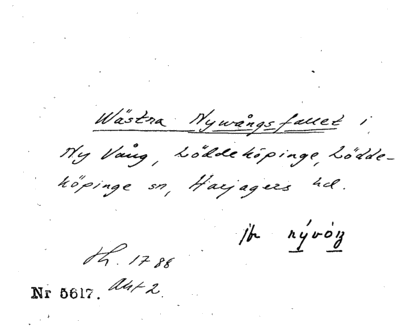 Wästra Nywångsfallet i
Ny Vång, Löddeköpinge, Lödde-
köpinge sn, Harjagers hd.
jfr nývóŋ
Sh. 1788
Akt 2.
Nr 5617.